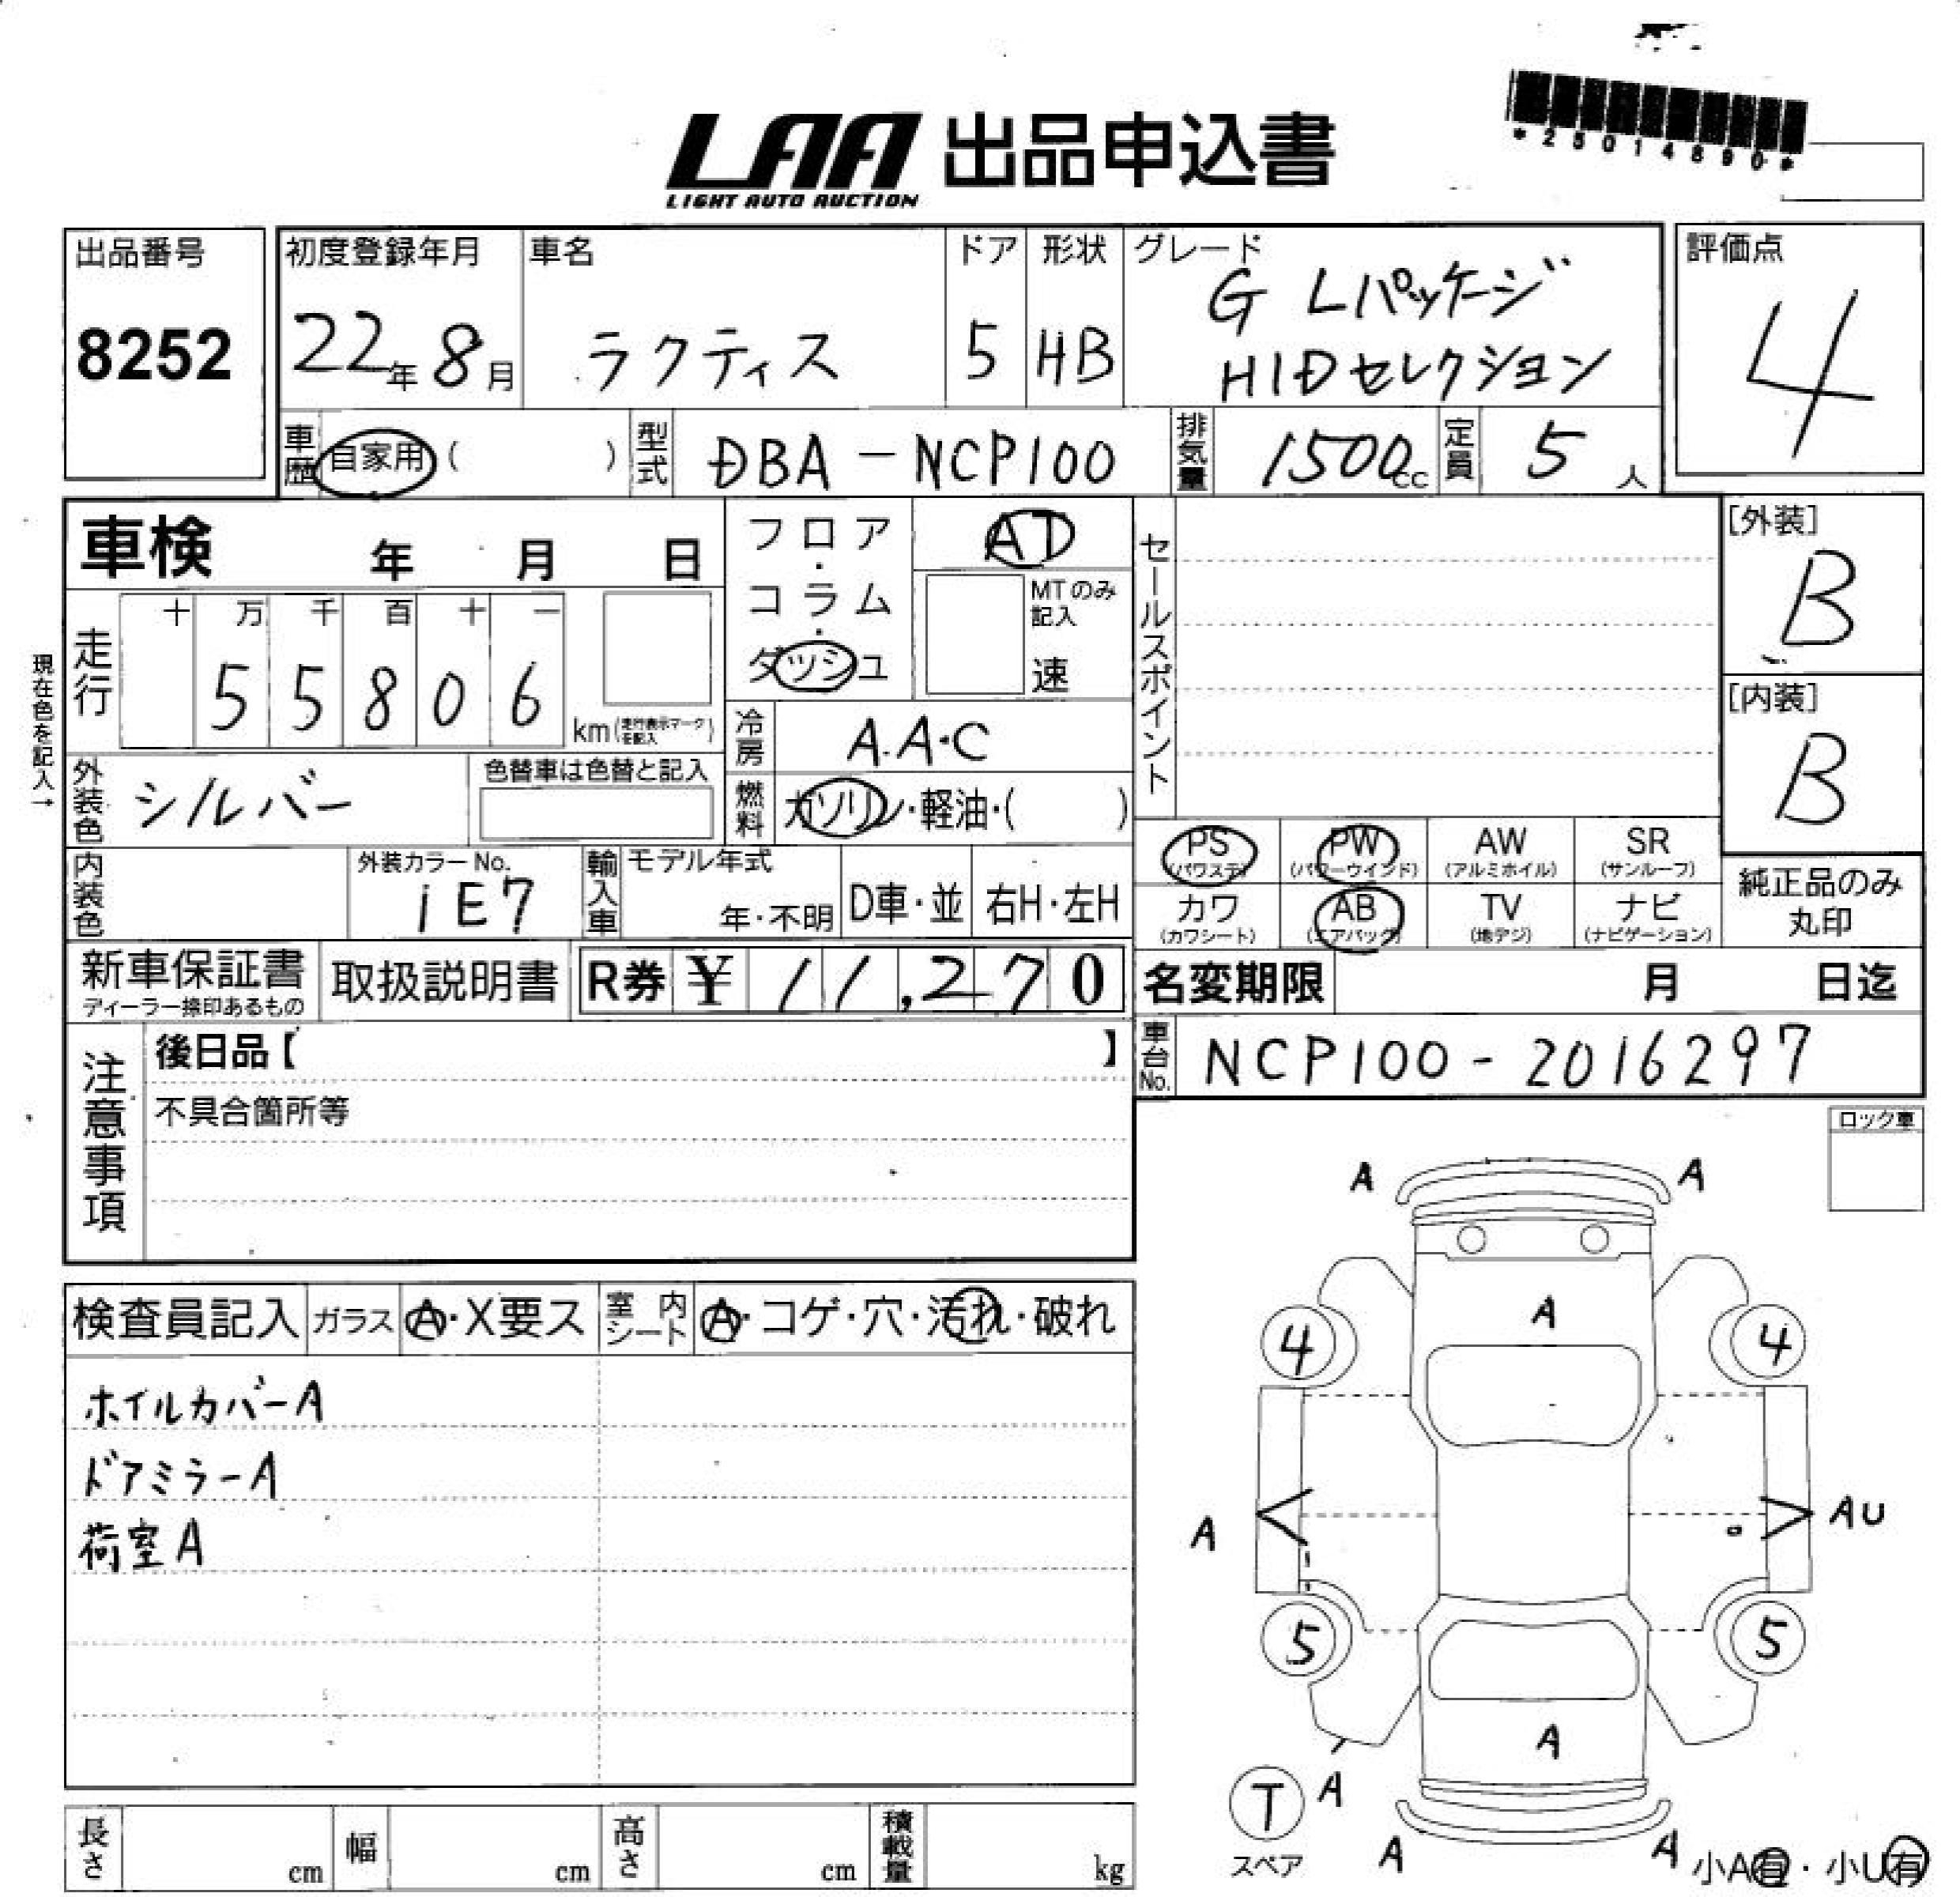 *25014890*
LAA 出品申込書
LIGHT AUTO AUCTION
出品番号
8252
初度登録年月
22年 8月
車名
ラクティス
ドア
5
形状
HB
グレード
G Lパッケージ
HIDセレクション
評価点
4
車歴 自家用 ( )
型式 DBA-NCP100
排気量 1500cc
定員 5人
車検 年 月 日
フロア・コラム・ダッシュ
AD
MTのみ記入
速
セールスポイント
[外装]
B
[内装]
B
現在色を記入→
走行
十 万 千 百 十 一
5 5 8 0 6
km (走行表示マークを記入)
冷房 A.A.C
外装色 シルバー
色替車は色替と記入
燃料 ガソリン・軽油・( )
PS (パワステ)
PW (パワーウインド)
AW (アルミホイル)
SR (サンルーフ)
カワ (カワシート)
AB (エアバッグ)
TV (地デジ)
ナビ (ナビゲーション)
純正品のみ
丸印
内装色
外装カラーNo.
1E7
輸入車
モデル年式
年・不明
D車・並
右H・左H
新車保証書
ディーラー捺印あるもの
取扱説明書
R券 ¥ 11,270
名変期限 月 日迄
車台No. NCP100-2016297
注意事項
後日品【 】
不具合箇所等
ロック車
検査員記入
ガラス A・X要ス
室内シート A・コゲ・穴・汚れ・破れ
ホイルカバーA
ドアミラーA
荷室A
A A
A
4 4
A AU
5 5
A
T A
スペア
A A
小A有・小U有
長さ cm
幅 cm
高さ cm
積載量 kg